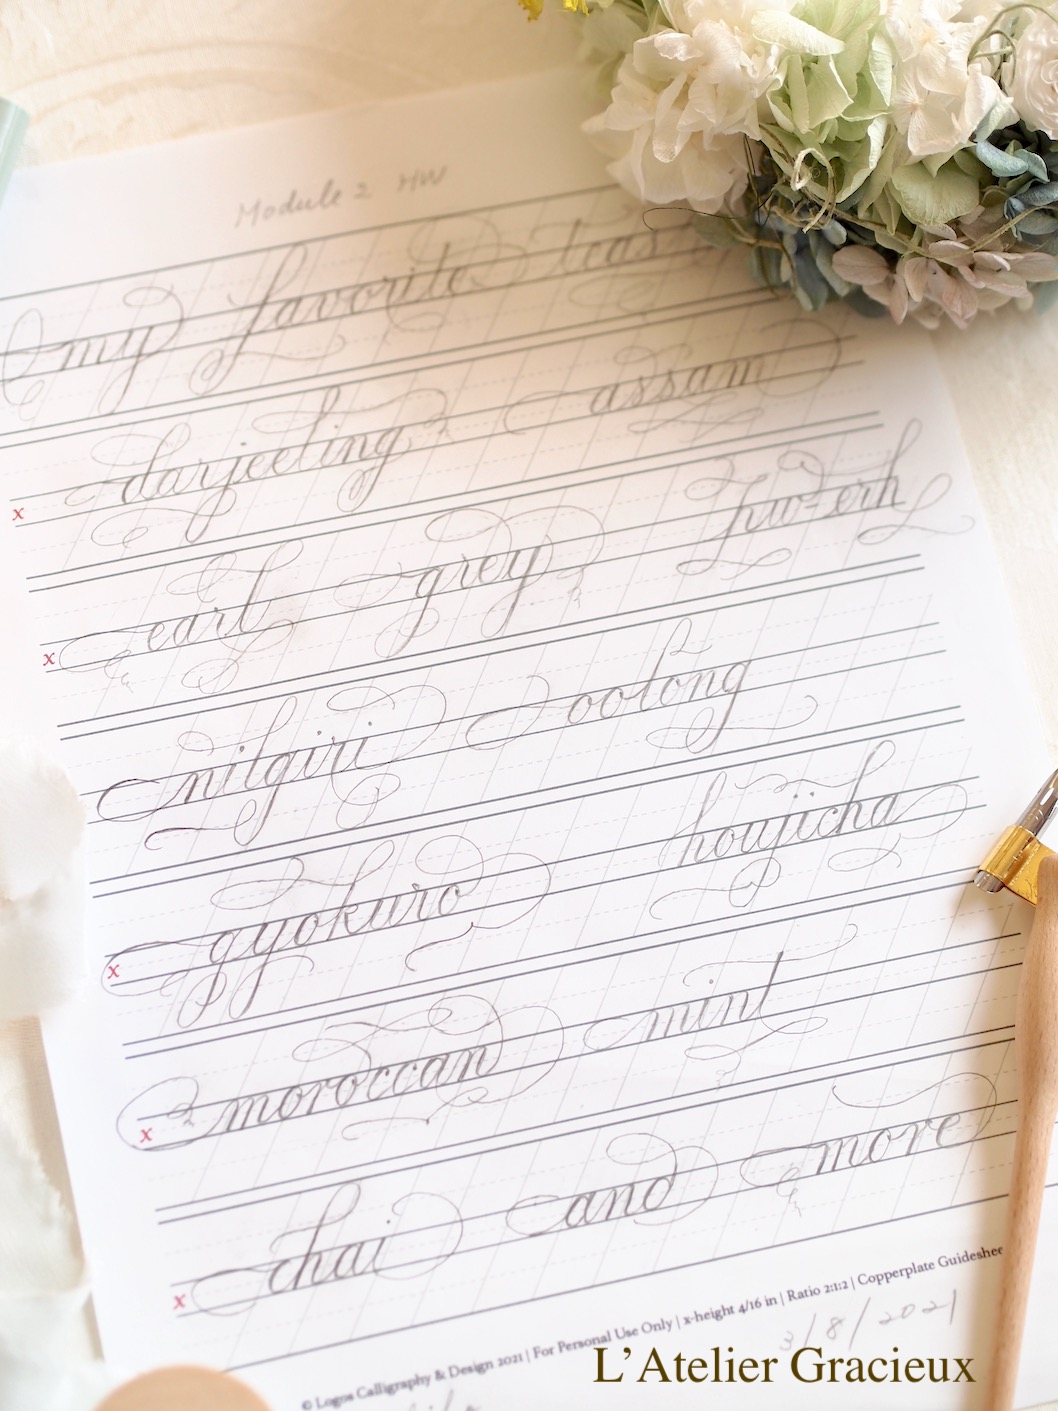 Module 2 HW
my favorite teas
darjeeling assam
x
earl grey hw-erh
x
nilgiri oolong
gyokuro houjicha
x
moroccan mint
x
chai and more
x
© Logos Calligraphy & Design 2021 | For Personal Use Only | x-height 4/16 in | Ratio 2:1:2 | Copperplate
3/8/2021
L'Atelier Gracieux